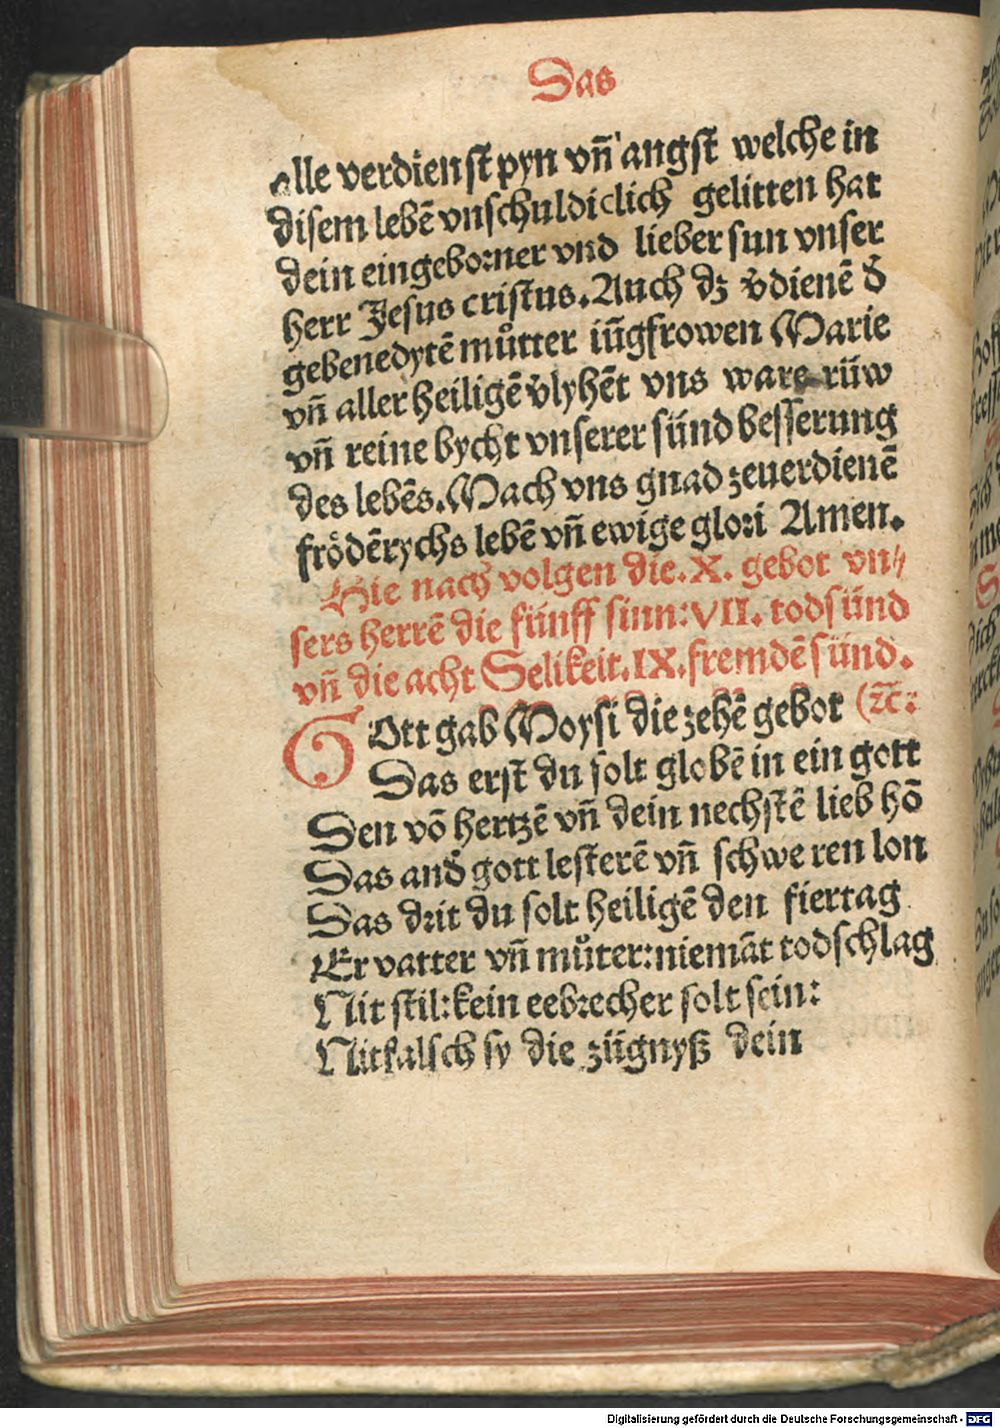 Das
alle verdienst pyn vñ angst welche in
disem lebē vnschuldiclich gelitten hat
dein eingeborner vnd lieber sun vnser
herr Jesus cristus. Auch dz v̄dienē d̄
gebenedytē můtter iūgfrowen Marie
vñ aller heiligē v̄lyhēt vns ware rüw
vñ reine bycht vnserer sünd besserung
des lebēs. Mach vns gnad zeuerdienē
frödērychs lebē vñ ewige glori Amen.
Hie nach volgen die .X. gebot vn⸗
sers herrē die fünff sinn: VII. todsünd
vñ die acht Selikeit. IX. fremdē sünd.
(⁊c̄:
Gott gab Moysi die zehē gebot
Das erst du solt globē in ein gott
Den vō hertzē vñ dein nechstē lieb hō
Das and̄ gott lesterē vñ schweren lon
Das drit du solt heiligē den fiertag
Er vatter vñ můter: niemāt todschlag
Nit stil: kein eebrecher solt sein:
Nit falsch sy die zügnyß dein
Digitalisierung gefördert durch die Deutsche Forschungsgemeinschaft - DFG